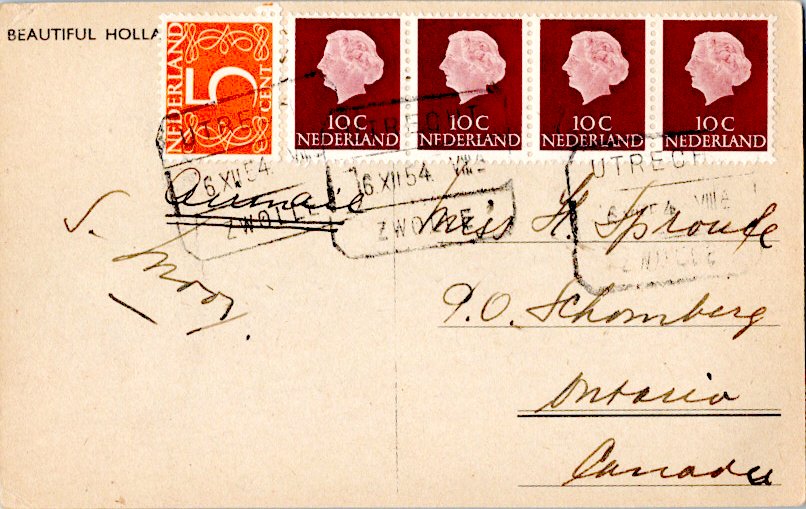 BEAUTIFUL HOLLA
NEDERLAND 5 CENT
10 C NEDERLAND
10 C NEDERLAND
10 C NEDERLAND
10 C NEDERLAND
UTRE
6 XII 54 VIII A
ZWOLLE
UTRECHT
6 XII 54 VIII A
ZWOLLE
UTRECH
6 XII 54 VIII A
ZWOLLE
Airmail
S. Moor.
Miss H. Sproule
P.O. Schomberg
Ontario
Canada